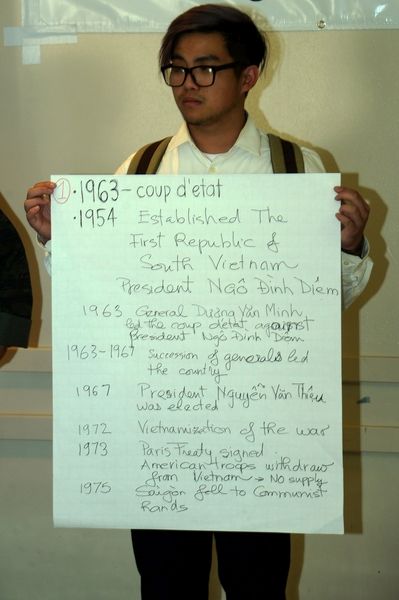 ① • 1963 - coup d'état
• 1954 Established The
First Republic of
South Vietnam
President Ngô Đình Diếm
1963 General Dương Văn Minh
led the coup d'etat against
President Ngô Đình Diếm
1963-1967 Succession of generals led
the country
1967 President Nguyễn Văn Thiệu
was elected
1972 Vietnamization of the war
1973 Paris Treaty signed
American troops withdraw
from Vietnam → No supply
1975 Saigon fell to Communist
hands